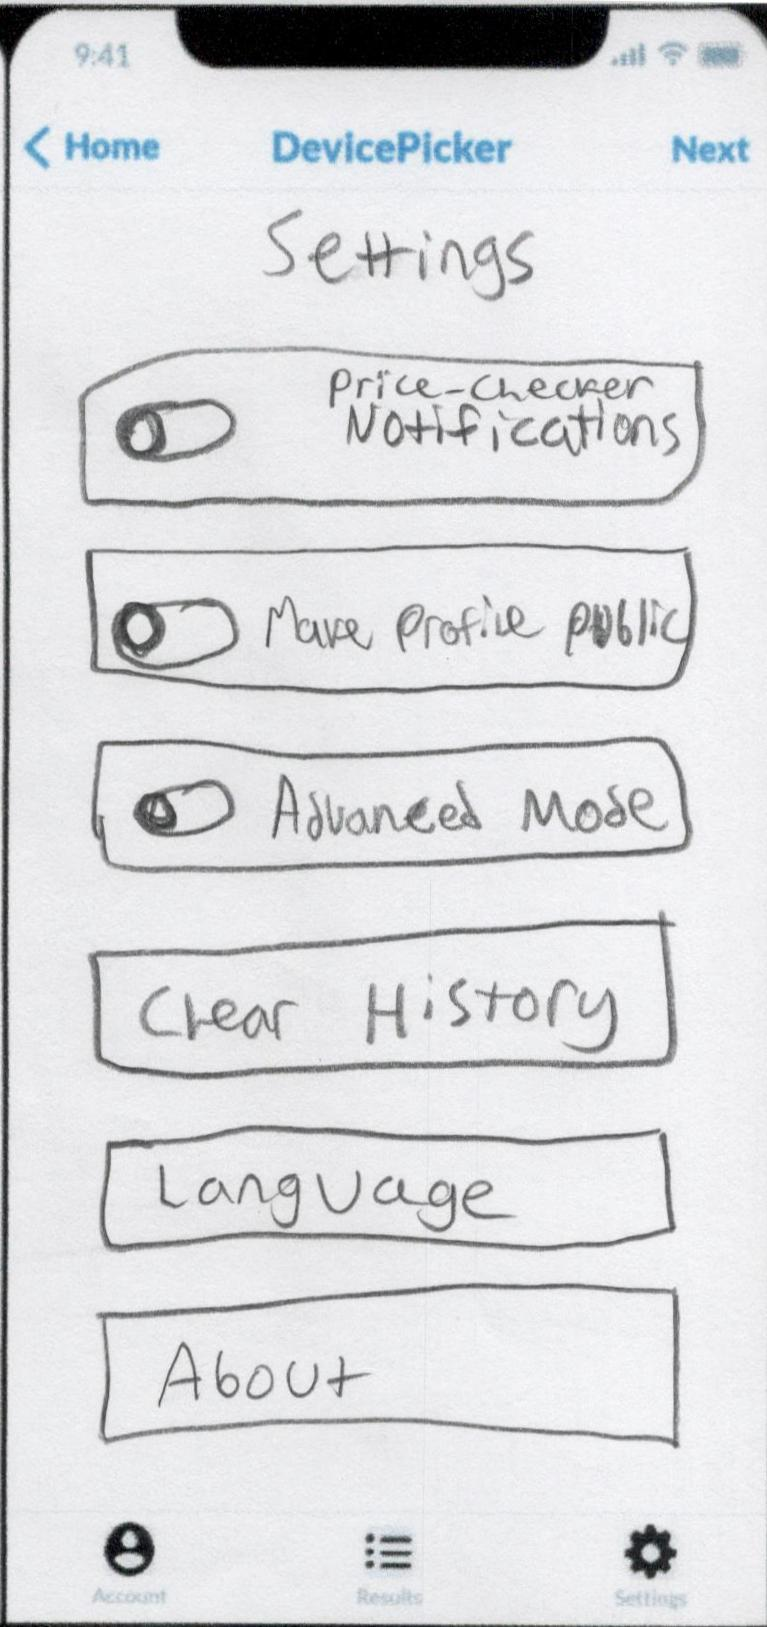 9:41
Home DevicePicker Next
Settings
Price-Checker
Notifications
Make Profile public
Advanced Mode
Clear History
Language
About
Account Results Settings